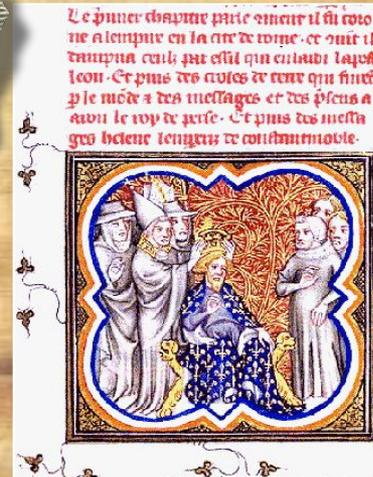 Le premier chapitre parle coment il fu coro
ne a lempire en la cite de rome · et coment il
dampna ceulz par essil qui
leon · Et puis des croles de terre qui
p le mōde ⁊ des messages et des
aaron le roy de perse · Et puis des messa
ges helene lemperiz de constantinoble ·